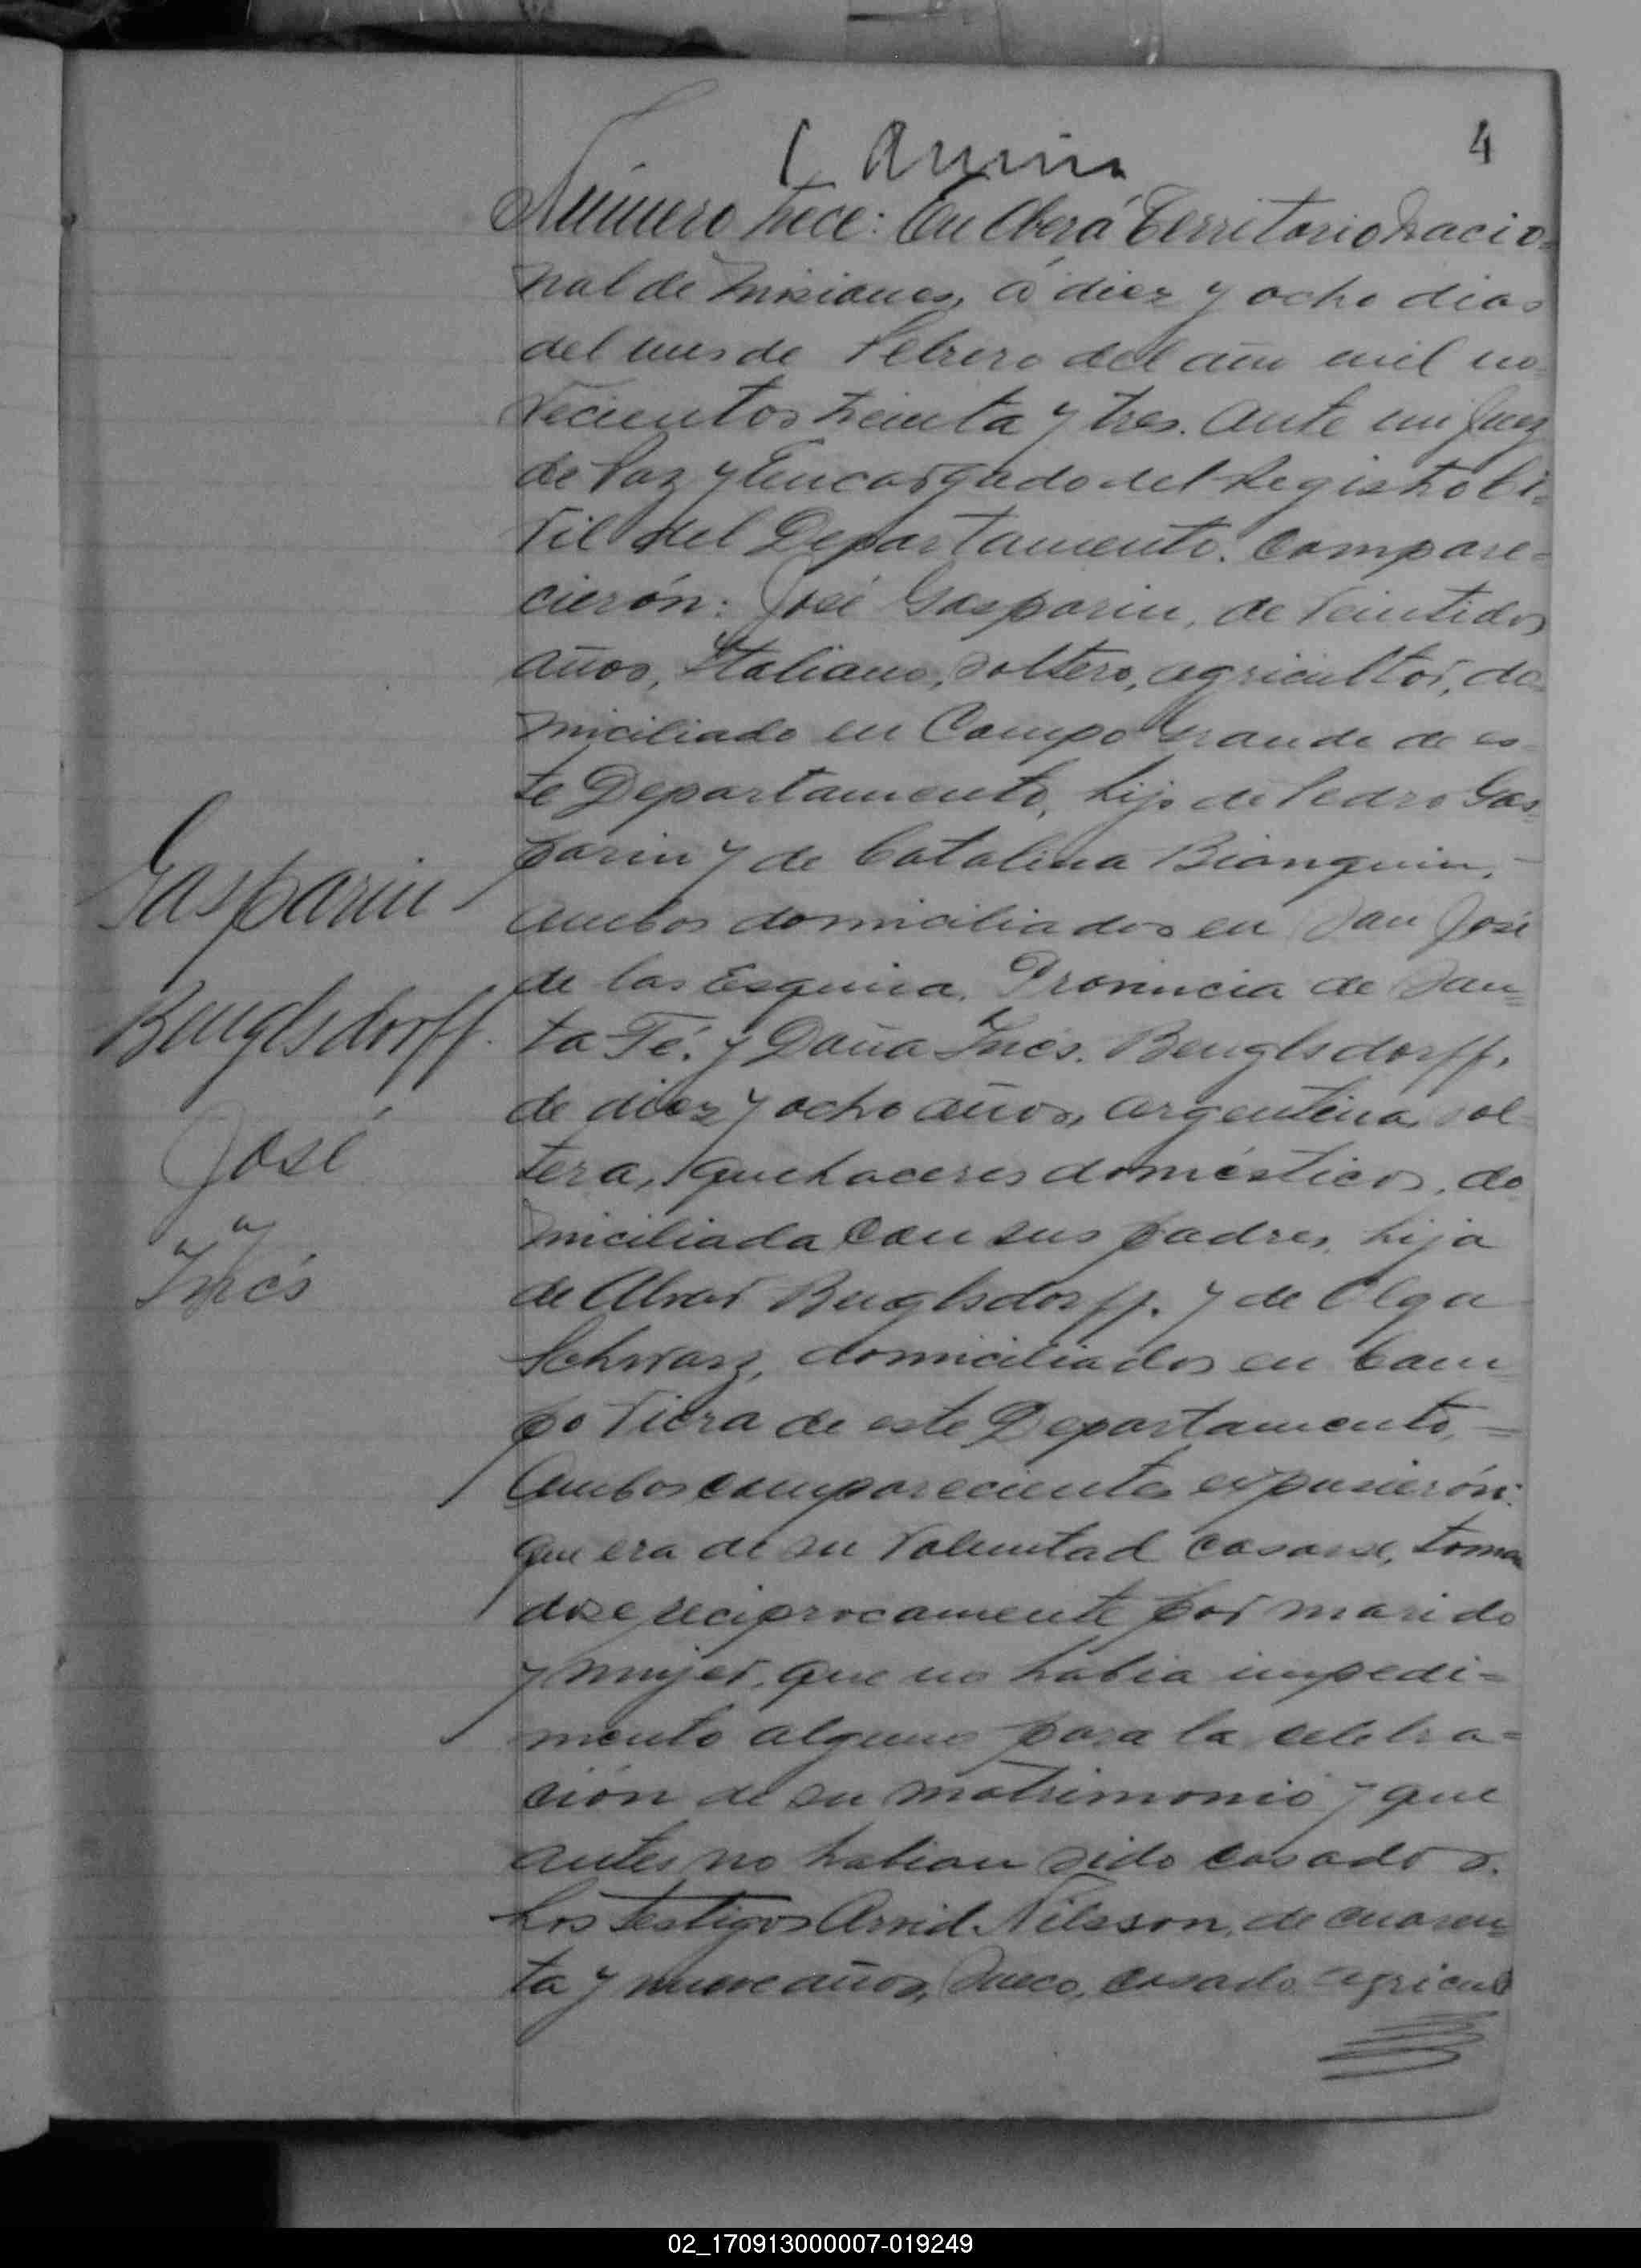 4
Número trece: En Oberá Territorio Nacio=
nal de Misiones, á diez y ocho dias
del mes de Febrero del año mil no-
vecientos treinta y tres. Ante mi Juez
de Paz y Encargado del Registro Ci=
vil del Departamento. Compare=
cierón: José Gasparin, de veintidos
años, Italiano, soltero, agricultor, do-
miciliado en Campo Grande de es-
te Departamento, hijo de Pedro Gas=
parin y de Catalina Bianquin, -
ambos domiciliados en San José
de las Esquina, Provincia de San=
ta Fé. y Doña Inés. Benglsdorff,
de diez y ocho años, argentina, sol-
tera, quehaceres domésticos, do-
miciliada con sus padres, hija
de Alvar Benglsdorff. y de Olga
Schwarz, domiciliados en Cam-
po Viera de este Departamento, =
Ambos comparecientes expusierón:
que era de su voluntad casarse, toman
dose reciprocamente por marido
y mujer, que no habia impedi=
mento alguno para la celebra=
ción de su matrimonio y que
antes no habian sido casados.
Los testigos Arvid Nilsson, de cuaren=
ta y nueve años, Sueco, casado agricul
Gasparin
Benglsdorff.
José
y
Inés
02_170913000007-019249